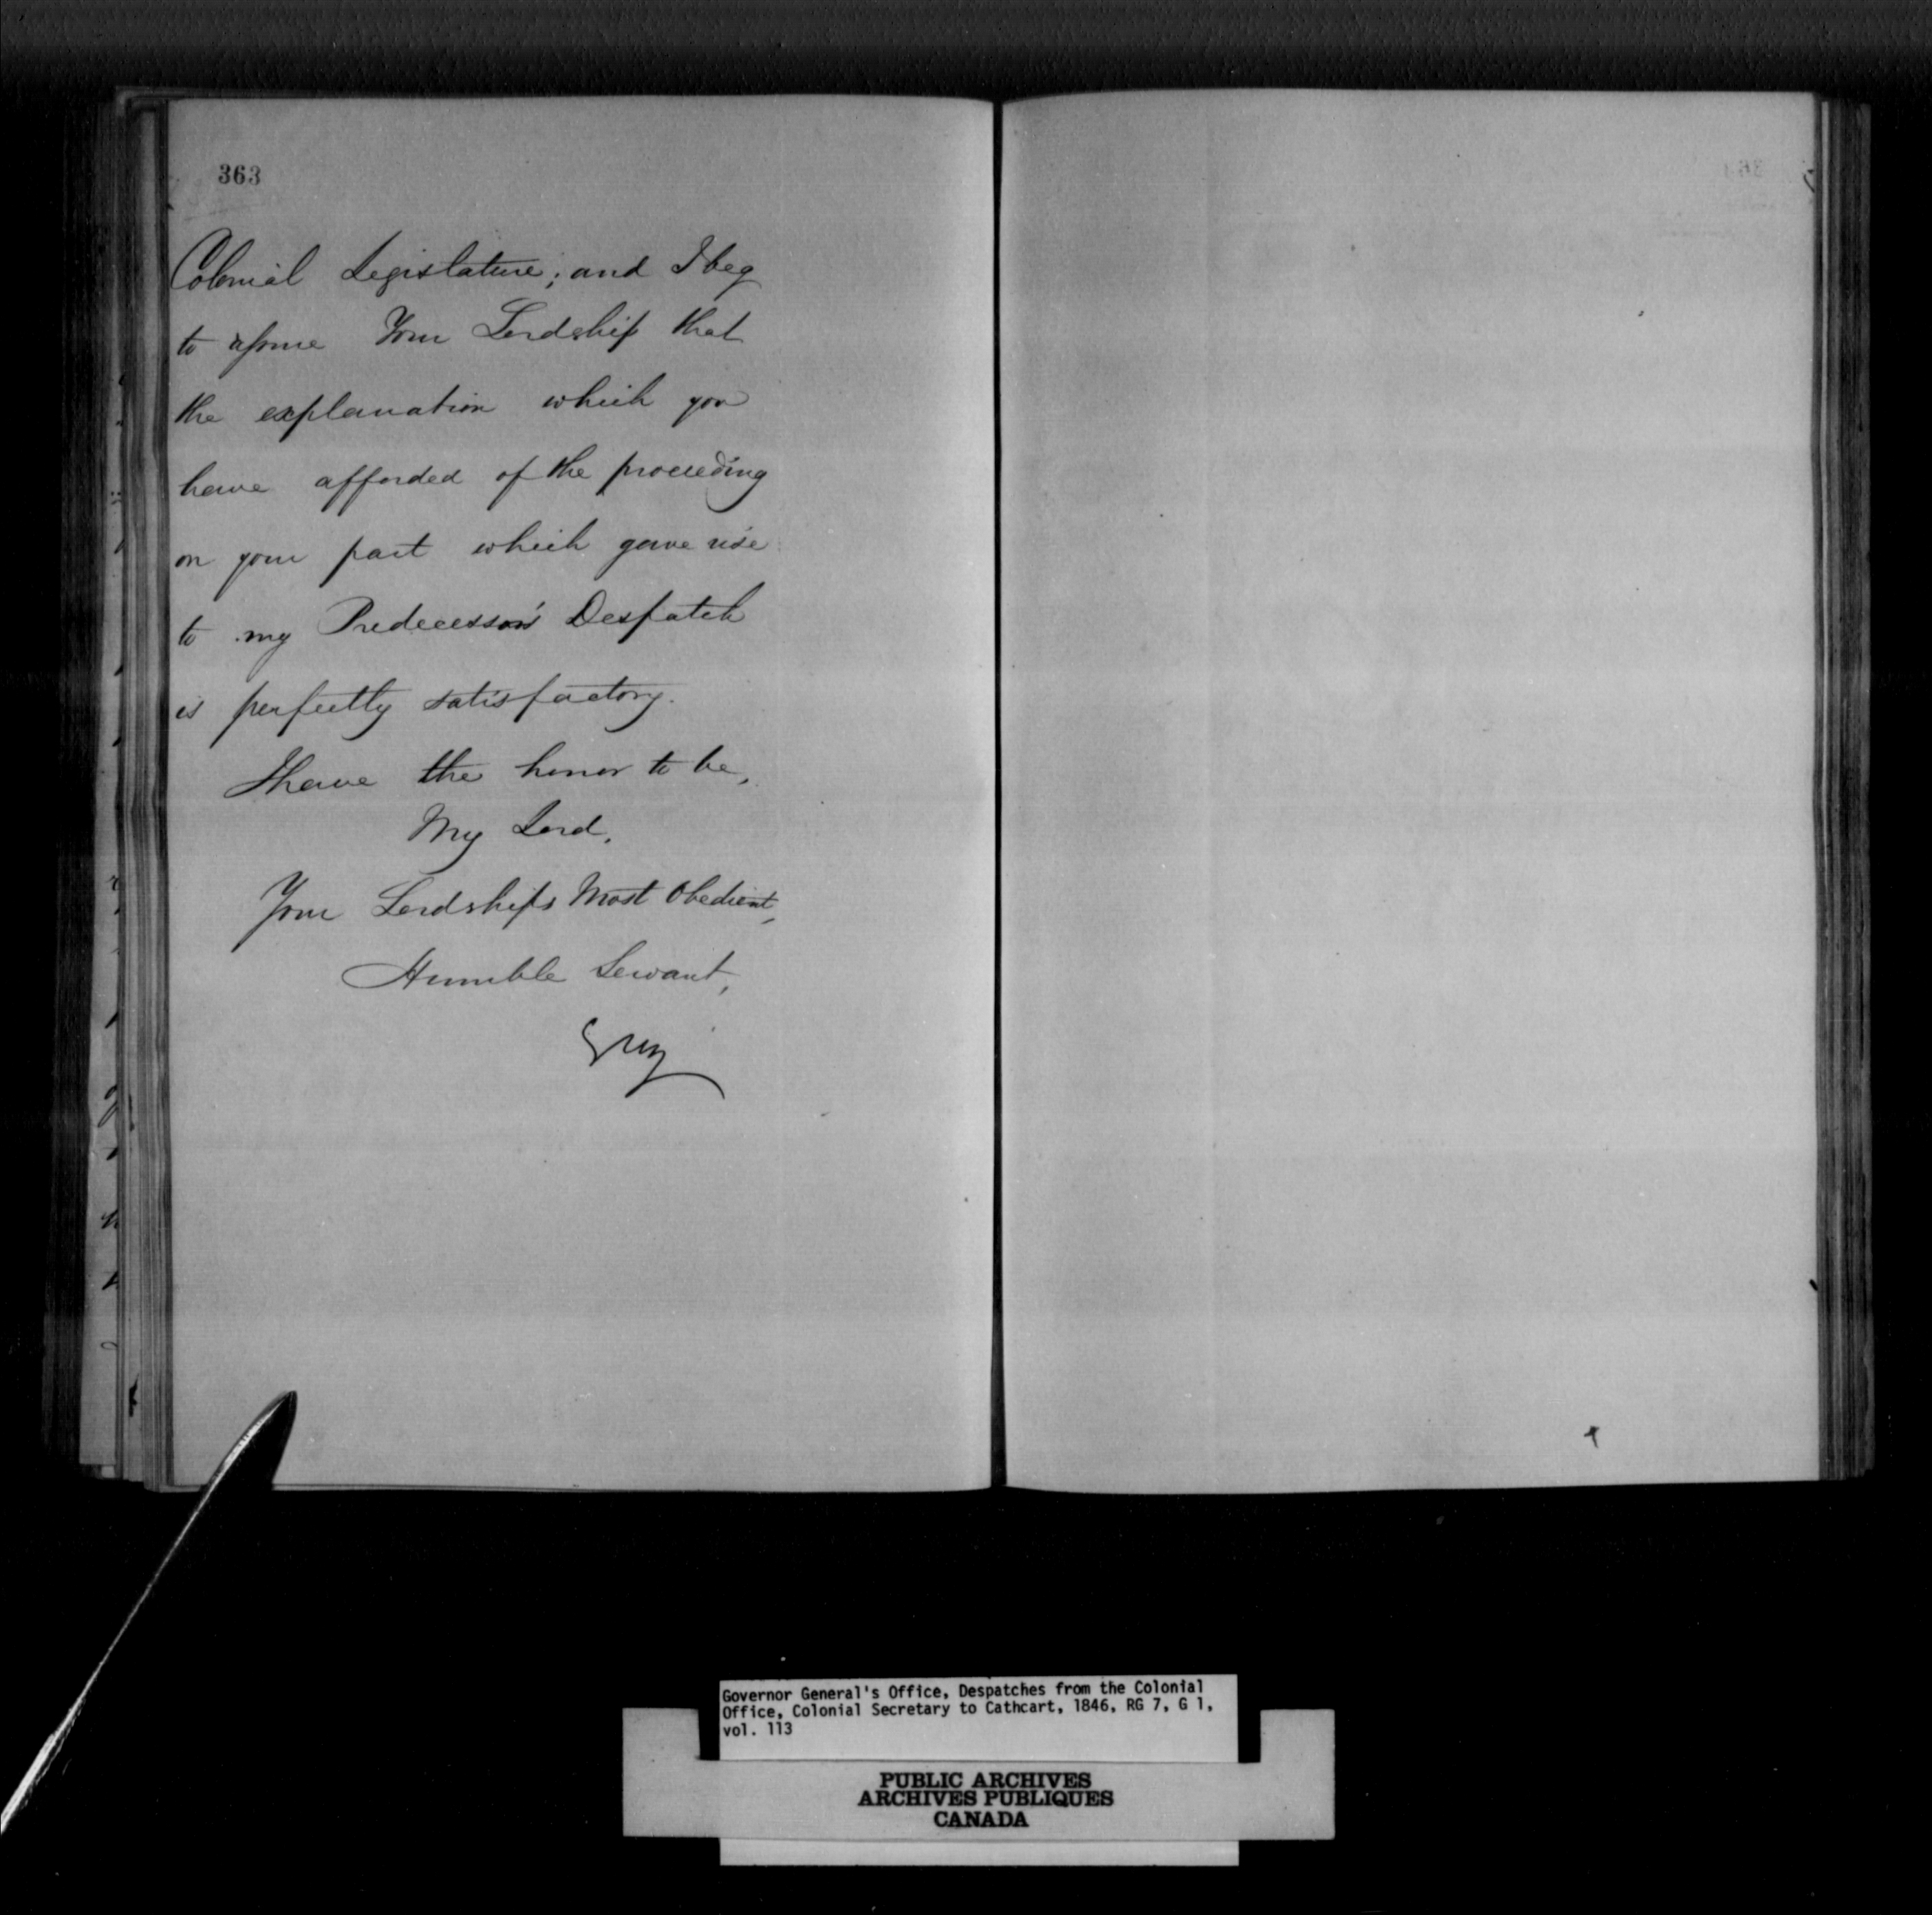 363
Colonial Legislature; and I beg
to assure Your Lordship that
the explanation which you
have afforded of the proceeding
on your part which gave rise
to my Predecessor's Despatch
is perfectly satisfactory.
I have the honor to be,
My Lord,
Your Lordship's Most Obedient,
Humble Servant,
Grey
Governor General's Office, Despatches from the Colonial
Office, Colonial Secretary to Cathcart, 1846, RG 7, G 1,
vol. 113
PUBLIC ARCHIVES
ARCHIVES PUBLIQUES
CANADA